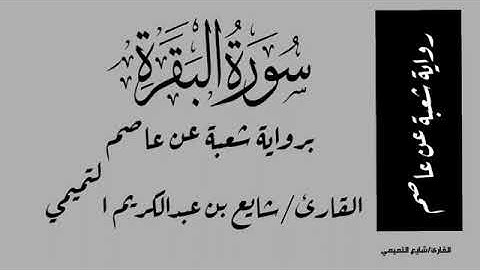 سُورَةُ البَقَرَةِ
برواية شعبة عن عاصم
القارئ/شايع بن عبدالكريم التميمي
رواية شعبة عن عاصم
القارئ/شايع التميمي